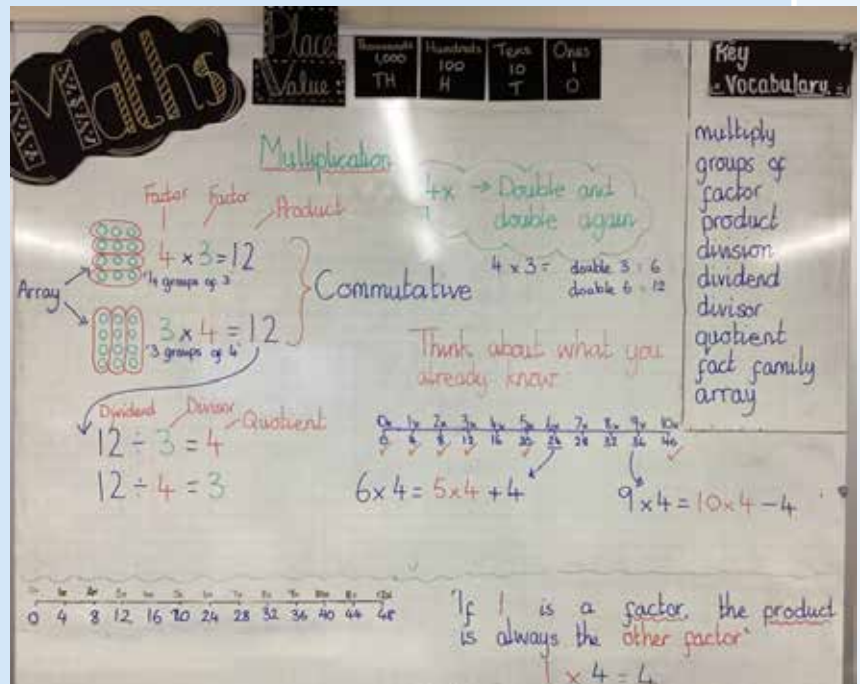 Maths
Place
Value:
Thousands
1,000
TH
Hundreds
100
H
Tens
10
T
Ones
1
O
Key
Vocabulary
multiply
groups of
factor
product
division
dividend
divisor
quotient
fact family
array
Multiplication
Factor Factor Product
4 × 3 = 12
"4 groups of 3"
Array
3 × 4 = 12
"3 groups of 4"
Commutative
4x → Double and
double again
4 × 3 = double 3 = 6
double 6 = 12
Think about what you
already know
Dividend Divisor Quotient
12 ÷ 3 = 4
12 ÷ 4 = 3
0x 1x 2x 3x 4x 5x 6x 7x 8x 9x 10x
0 4 8 12 16 20 24 28 32 36 40
6 × 4 = 5 × 4 + 4
9 × 4 = 10 × 4 − 4
0 4 8 12 16 20 24 28 32 36 40 44 48
"If 1 is a factor, the product
is always the other factor"
1 × 4 = 4